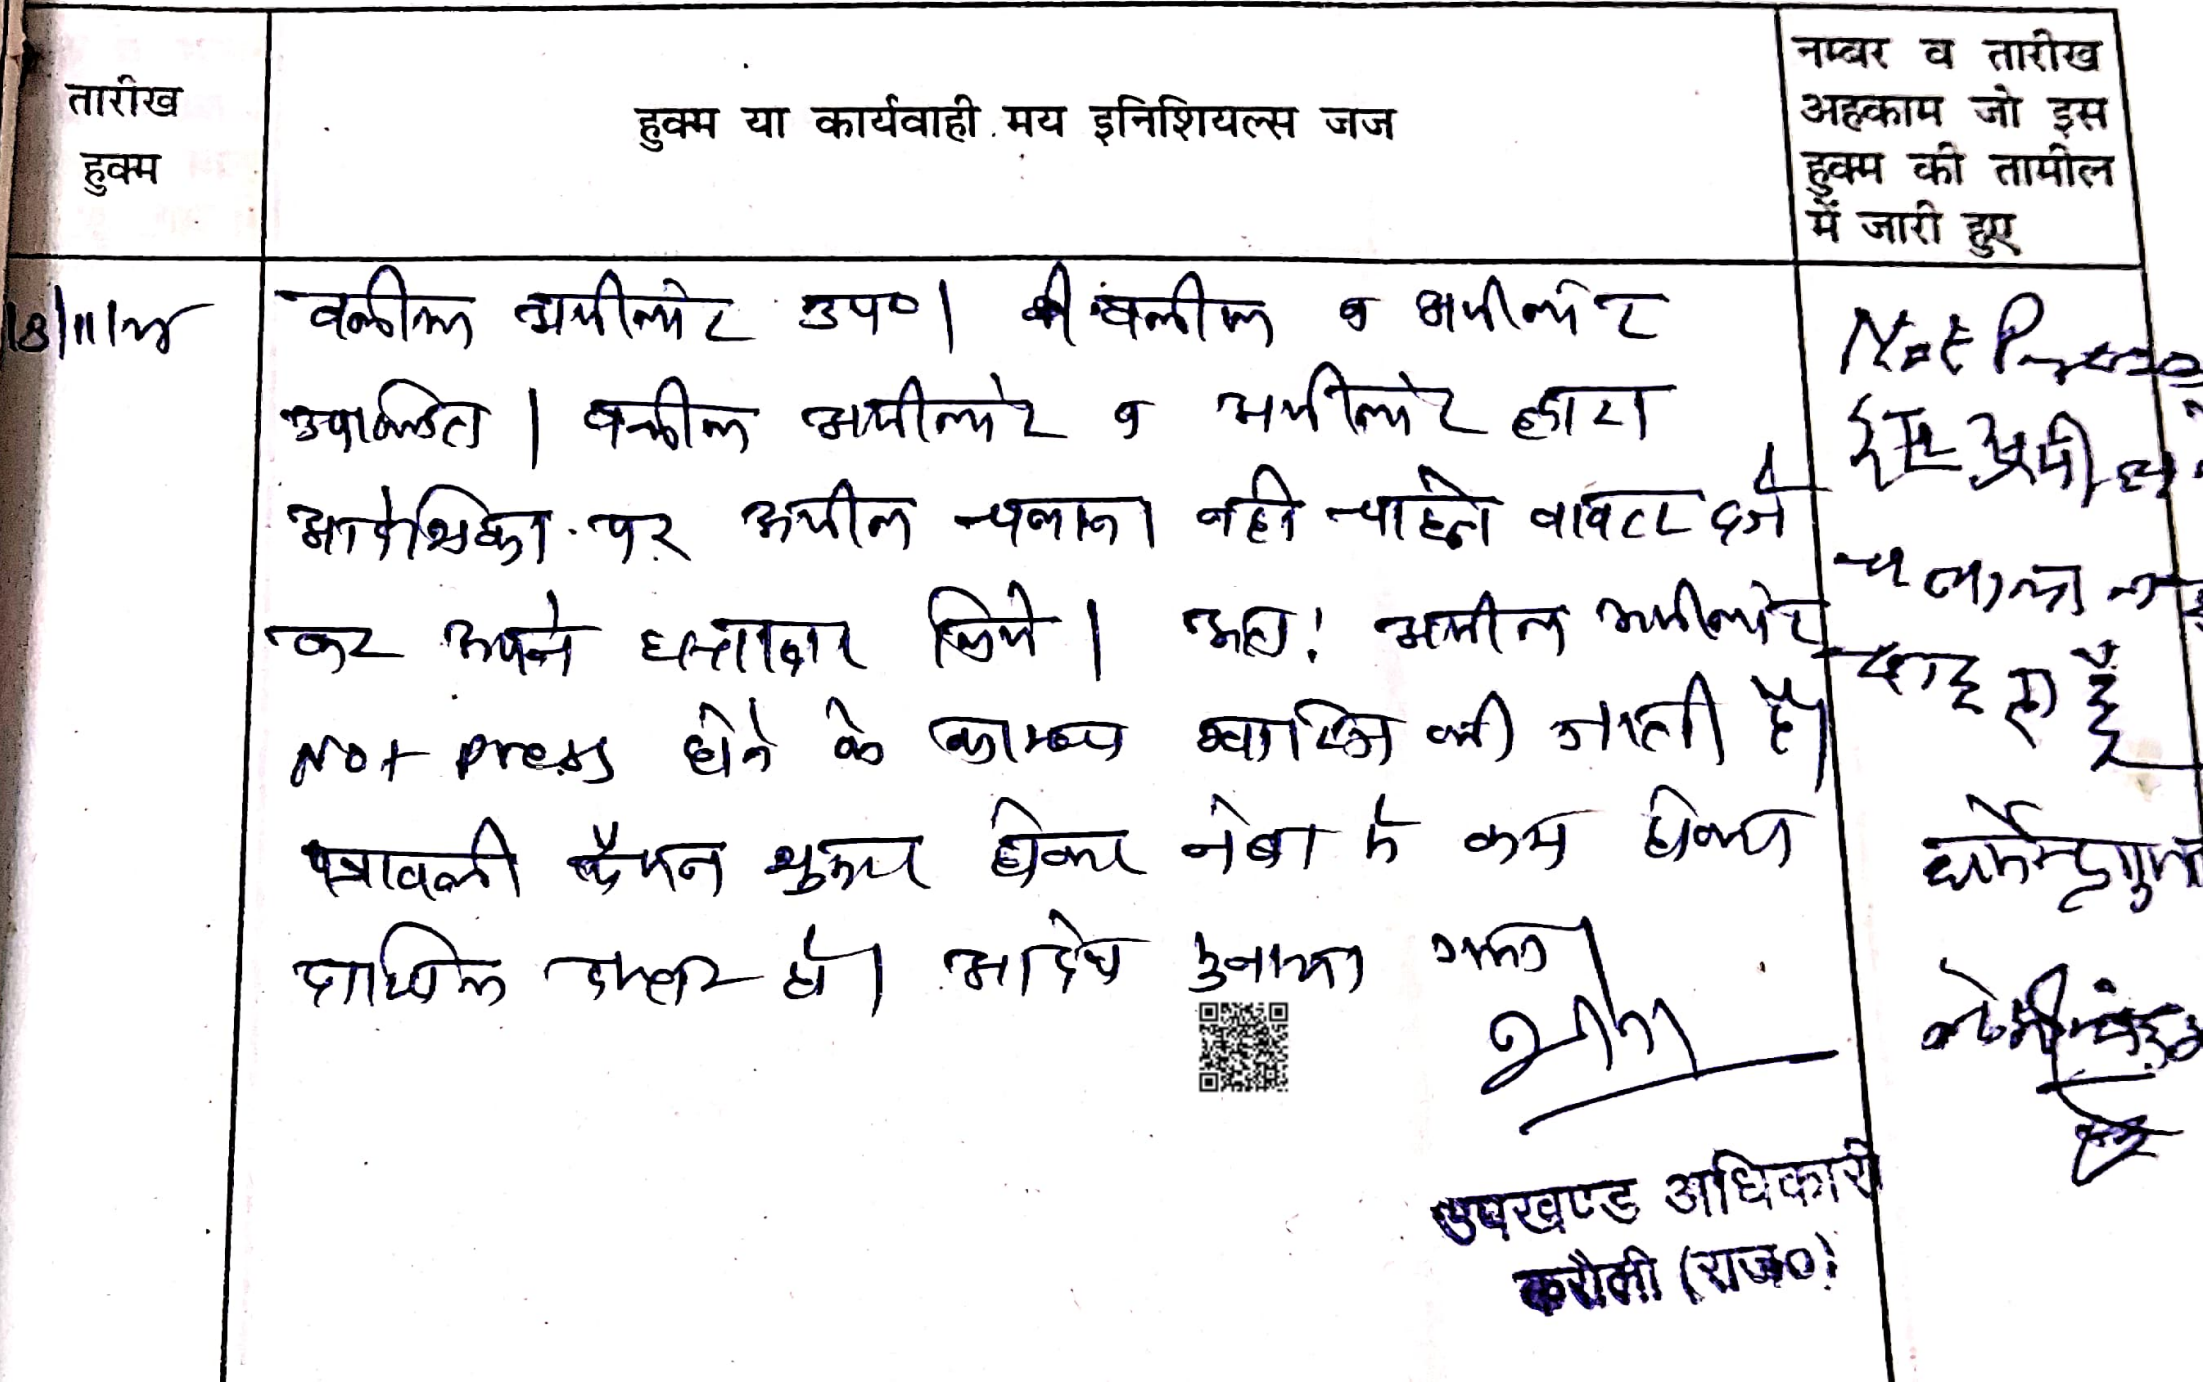 तारीख
हुक्म
हुक्म या कार्यवाही मय इनिशियल्स जज
नम्बर व तारीख
अहकाम जो इस
हुक्म की तामील
में जारी हुए
वकील अपीलांट उप०। वकील व अपीलांट
उपस्थित। वकील अपीलांट व अपीलांट द्वारा
आदेशिका पर अपील चलाना नही चाहने बाबत दर्ज
कर अपने हस्ताक्षर किये। अतः अपील अपीलांट
Not press होने के कारण खारिज की जाती है।
पत्रावली फैसल शुमार होकर नंबर से कम होकर
दाखिल दफ्तर हो। आदेश सुनाया गया।
Not
चलाना
चाहता हैं
उपखण्ड अधिकारी
करौली (राज०)